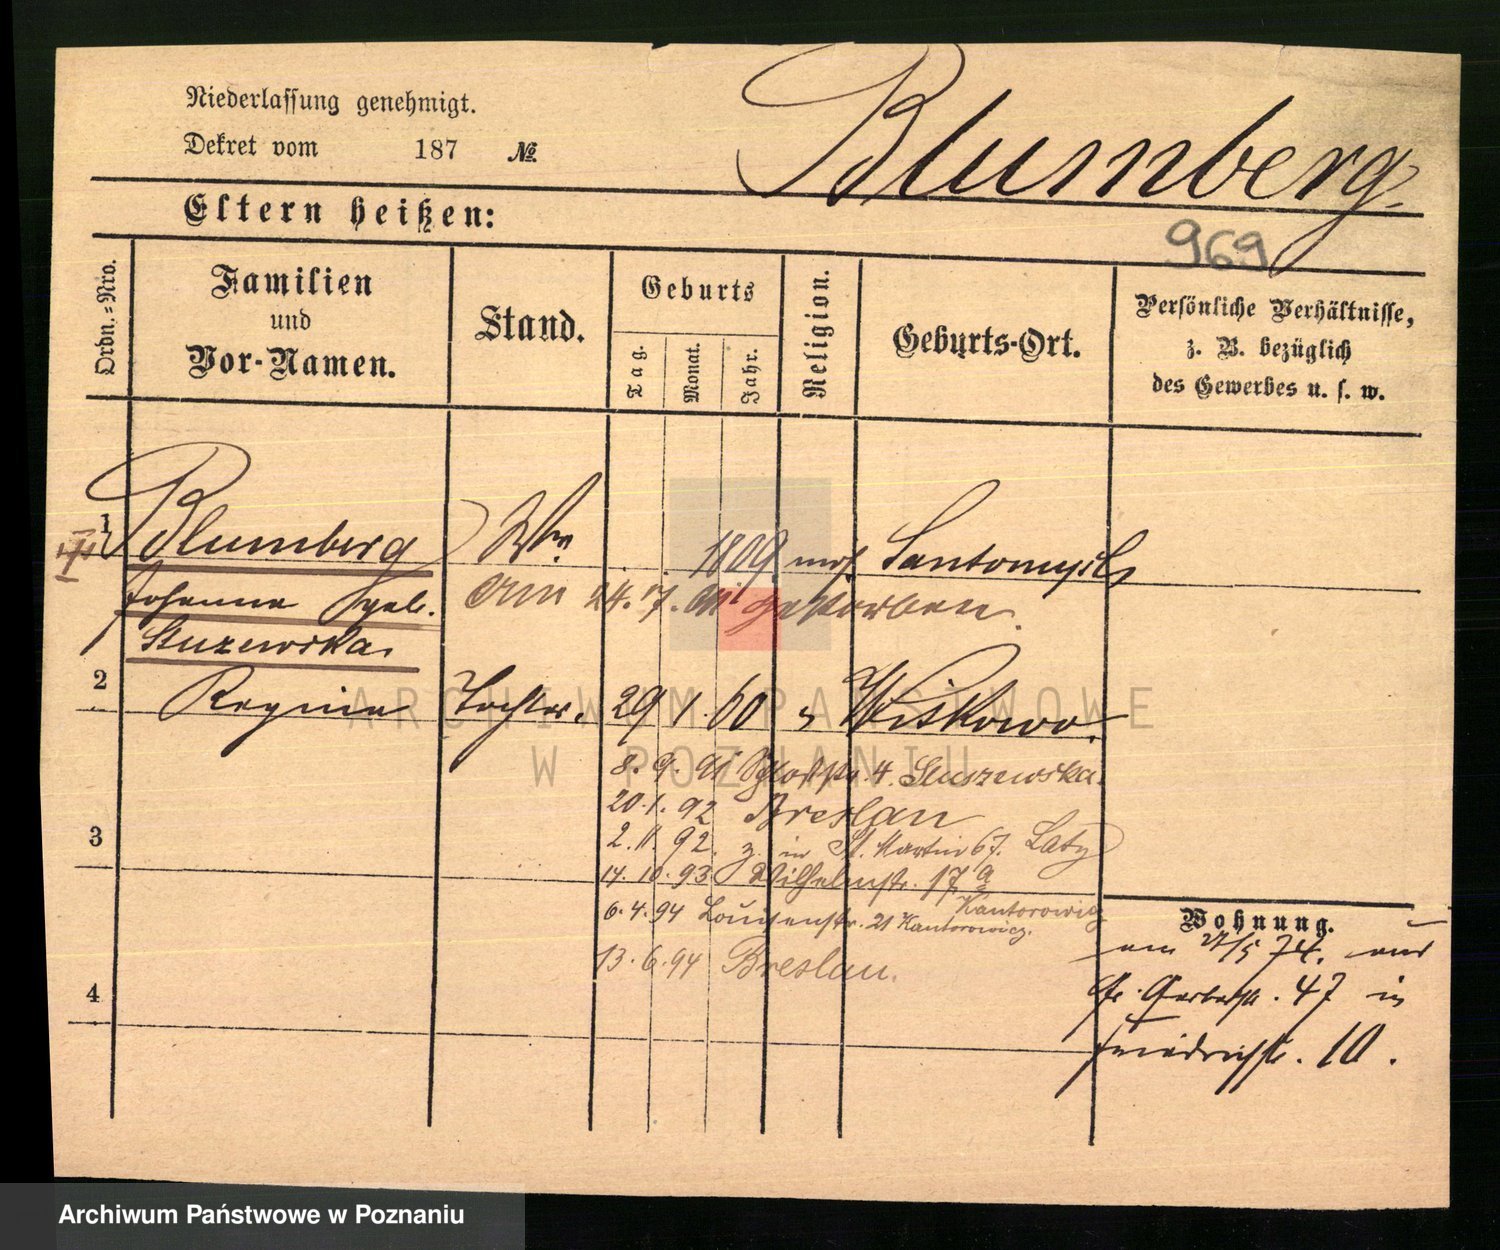 Niederlassung genehmigt.
Dekret vom 187 №
Blumberg.
Eltern heißen:
969
Ordn.=Nro.
Familien
und
Vor-Namen.
Stand.
Geburts
Tag.
Monat.
Jahr.
Religion.
Geburts-Ort.
Persönliche Verhältnisse,
z. B. bezüglich
des Gewerbes u. s. w.
1 Blumberg Wwe 1809 mos. Santomysl
Johanna geb. Am 24.7. gestorben.
Sluzewska
2 Regina Tochter. 29 1 60 " Witkowo.
8. 9. 91 Schloßstr. 4. Sluszewska.
20.1.92 Breslau
3 2.11.92. z. in St. Martin 67. Laty
14.10.93 Wilhelmstr. 17a
Kantorowicz
6.4.94 Louisenstr. 21 Kantorowicz.
13.6.94 Breslau.
4
Wohnung.
am 27/5 74. aus
gr. Gerberstr. 47 in
Friedrichstr. 10.
ARCHIWUM PAŃSTWOWE
W POZNANIU
Archiwum Państwowe w Poznaniu